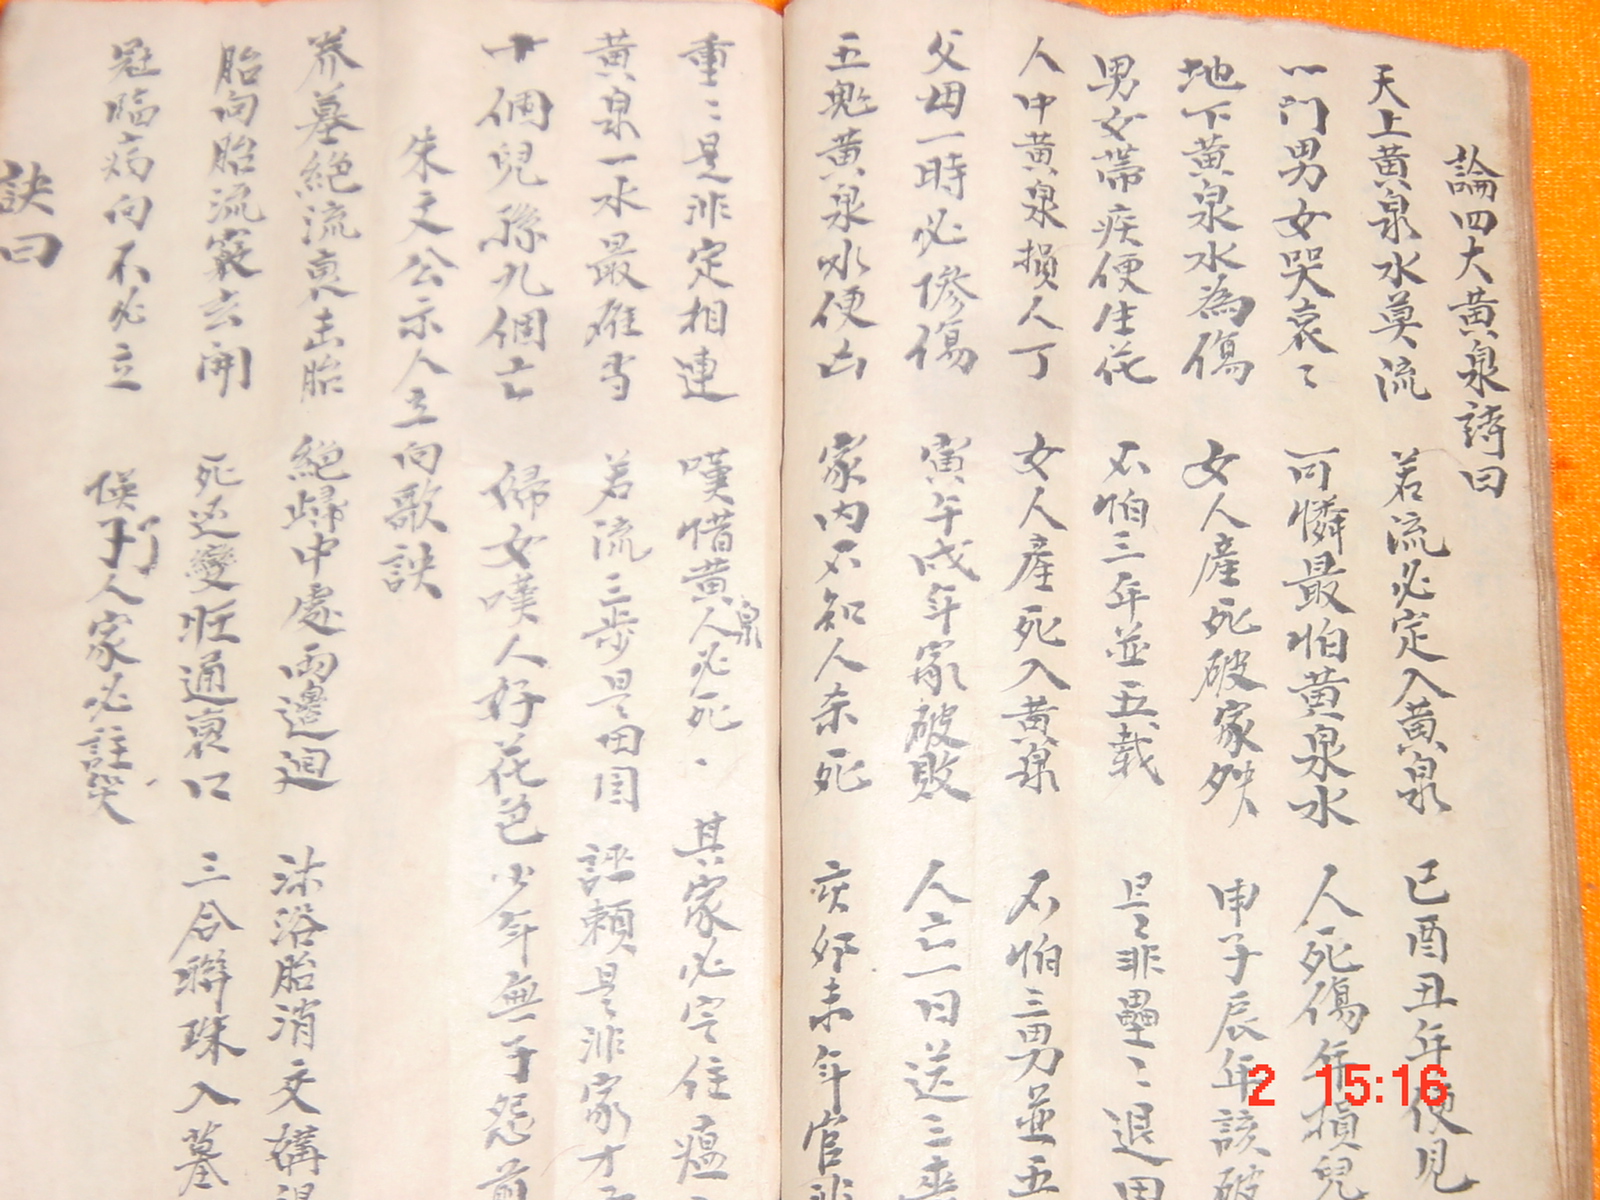 論四大黃泉詩曰
天上黃泉水莫流 若流必定入黃泉 巳酉丑年便見
一門男女哭哀〻 可憐最怕黃泉水 人死傷年損兒
地下黃泉水為傷 女人產死破家殃 申子辰年該破
男女帶疾便生花 不怕三年並五载 是〻非壘〻退田
人中黃泉損人丁 女人產死入黃泉 不怕三男並五
父母一時必慘傷 寅午戌年家破敗 人亡一日送三
五鬼黃泉水便凶 家內不知人奈死 亥卯未年官非
重〻是非定相連 嘆惜黃泉人必死 其家必定住瘟
黃泉一水最难当 若流三步是田園 誣賴是非家才
十個兒孫九個亡 婦女嘆人好花色 少年無子怨前
朱文公示人立向歌訣
养墓絕流真去胎 絕歸中處两邊迴 沐浴胎消文搆
胎向胎流竅去開 死还變旺通衰口 三合聯珠入墓
冠臨病向不必立 俟人家必註哭
訣曰
2 15:16